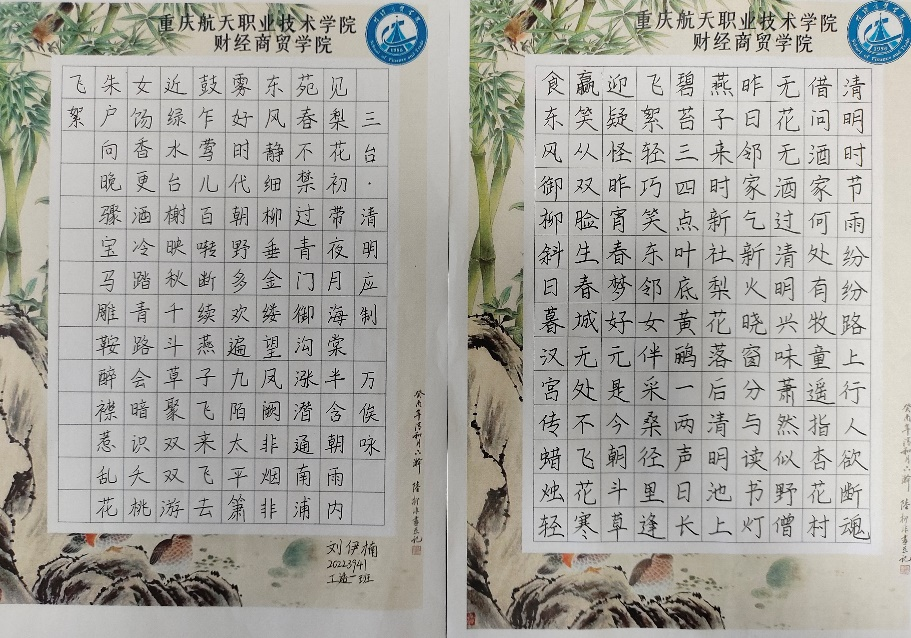 重庆航天职业技术学院
财经商贸学院
三台·清明应制 万俟咏
见梨花初带夜月海棠半含朝雨内
苑春不禁过青门御沟涨潜通南浦
东风静细柳垂金缕望凤阙非烟非
雾好时代朝野多欢遍九陌太平箫
鼓乍莺儿百啭断续燕子飞来飞去
近绿水台榭映秋千斗草聚双双游
女饧香更酒冷踏青路会暗识夭桃
朱户向晚骤宝马雕鞍醉襟惹乱花
飞絮
刘伊楠
20223941
工造一班
重庆航天职业技术学院
财经商贸学院
清明时节雨纷纷路上行人欲断魂
借问酒家何处有牧童遥指杏花村
无花无酒过清明兴味萧然似野僧
昨日邻家乞新火晓窗分与读书灯
燕子来时新社梨花落后清明池上
碧苔三四点叶底黄鹂一两声日长
飞絮轻巧笑东邻女伴采桑径里逢
迎疑怪昨宵春梦好元是今朝斗草
赢笑从双脸生春城无处不飞花寒
食东风御柳斜日暮汉宫传蜡烛轻